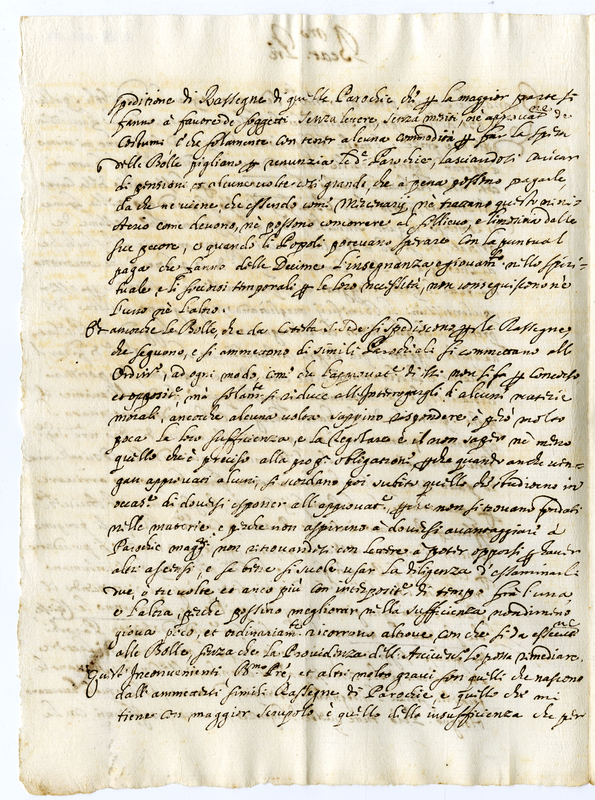 speditione di Rassegne di quelle Parochie che per la maggior parte si
fanno à favore de soggetti senza lettere, senza meriti, nè approvat.ne de
Costumi e che solamente con tener alcuna commodità per far la spesa
delle Bolle pigliano per renunzia le d.e Parochie, lasciandosi caricar
di pensioni et alcune volte così grande, che à pena possono pagarle,
da che ne viene, che essendo come Mercenarij, nè trattano questo mini-
sterio come devono, nè possono concorrere al sollievo, e limosina delle
sue pecore, e quando li Popoli potevano sperare con la puntual
paga che fanno delle Decime l'insegnanza, e giovam.to nello spiri-
tuale, e li sussidi temporali per le loro necessità, non conseguiscono nè
l'uno nè l'altro.
Et ancorche le Bolle, che da Cotesta S. Sede si spediscono per le Rassegne
che seguono, e si ammettono di simili Parochiali si commettano all'
Ordin.o, ad ogni modo, come che l'approvat.e di essi non si fa per concorso
et opposit.e, mà solam.te si riduce all'Interrogargli di alcune materie
morali, ancorche alcuna volta sappino rispondere, è però molto
poca la loro sufficienza, e la regolare è il non saper nè meno
quello che è preciso alla prop.a obligatione, perche quando anche ven-
gan approvati alcuni, si scordano poi subito quello che studiorno in
occas.e di doversi esponer all'approvat.e, perche non si trovano fondati
nelle materie, e perche non aspirino à doversi avantaggiare à
Parochie magg.ri non ritrovandosi con lettere à poter opporsi per haver
altri ascensi, e se bene si suole usar la diligenza d'essaminarli
due, ò tre volte et anco più con interposit.e di tempo frà l'una
e l'altra perche possino megliorar nella sufficienza nondimeno
giova poco, et ordinariam.te ricorrono altrove con che si da essecut.ne
alle Bolle, senza che la Providenza dell'Arcives.o lo possa rimediare.
Questi Inconvenienti B.mo Pre, et altri molto gravi son quelli che nascono
dall'ammettersi simili Rassegne di Parochie, e quello che mi
tiene con maggior scrupolo è quello della insufficienza che per